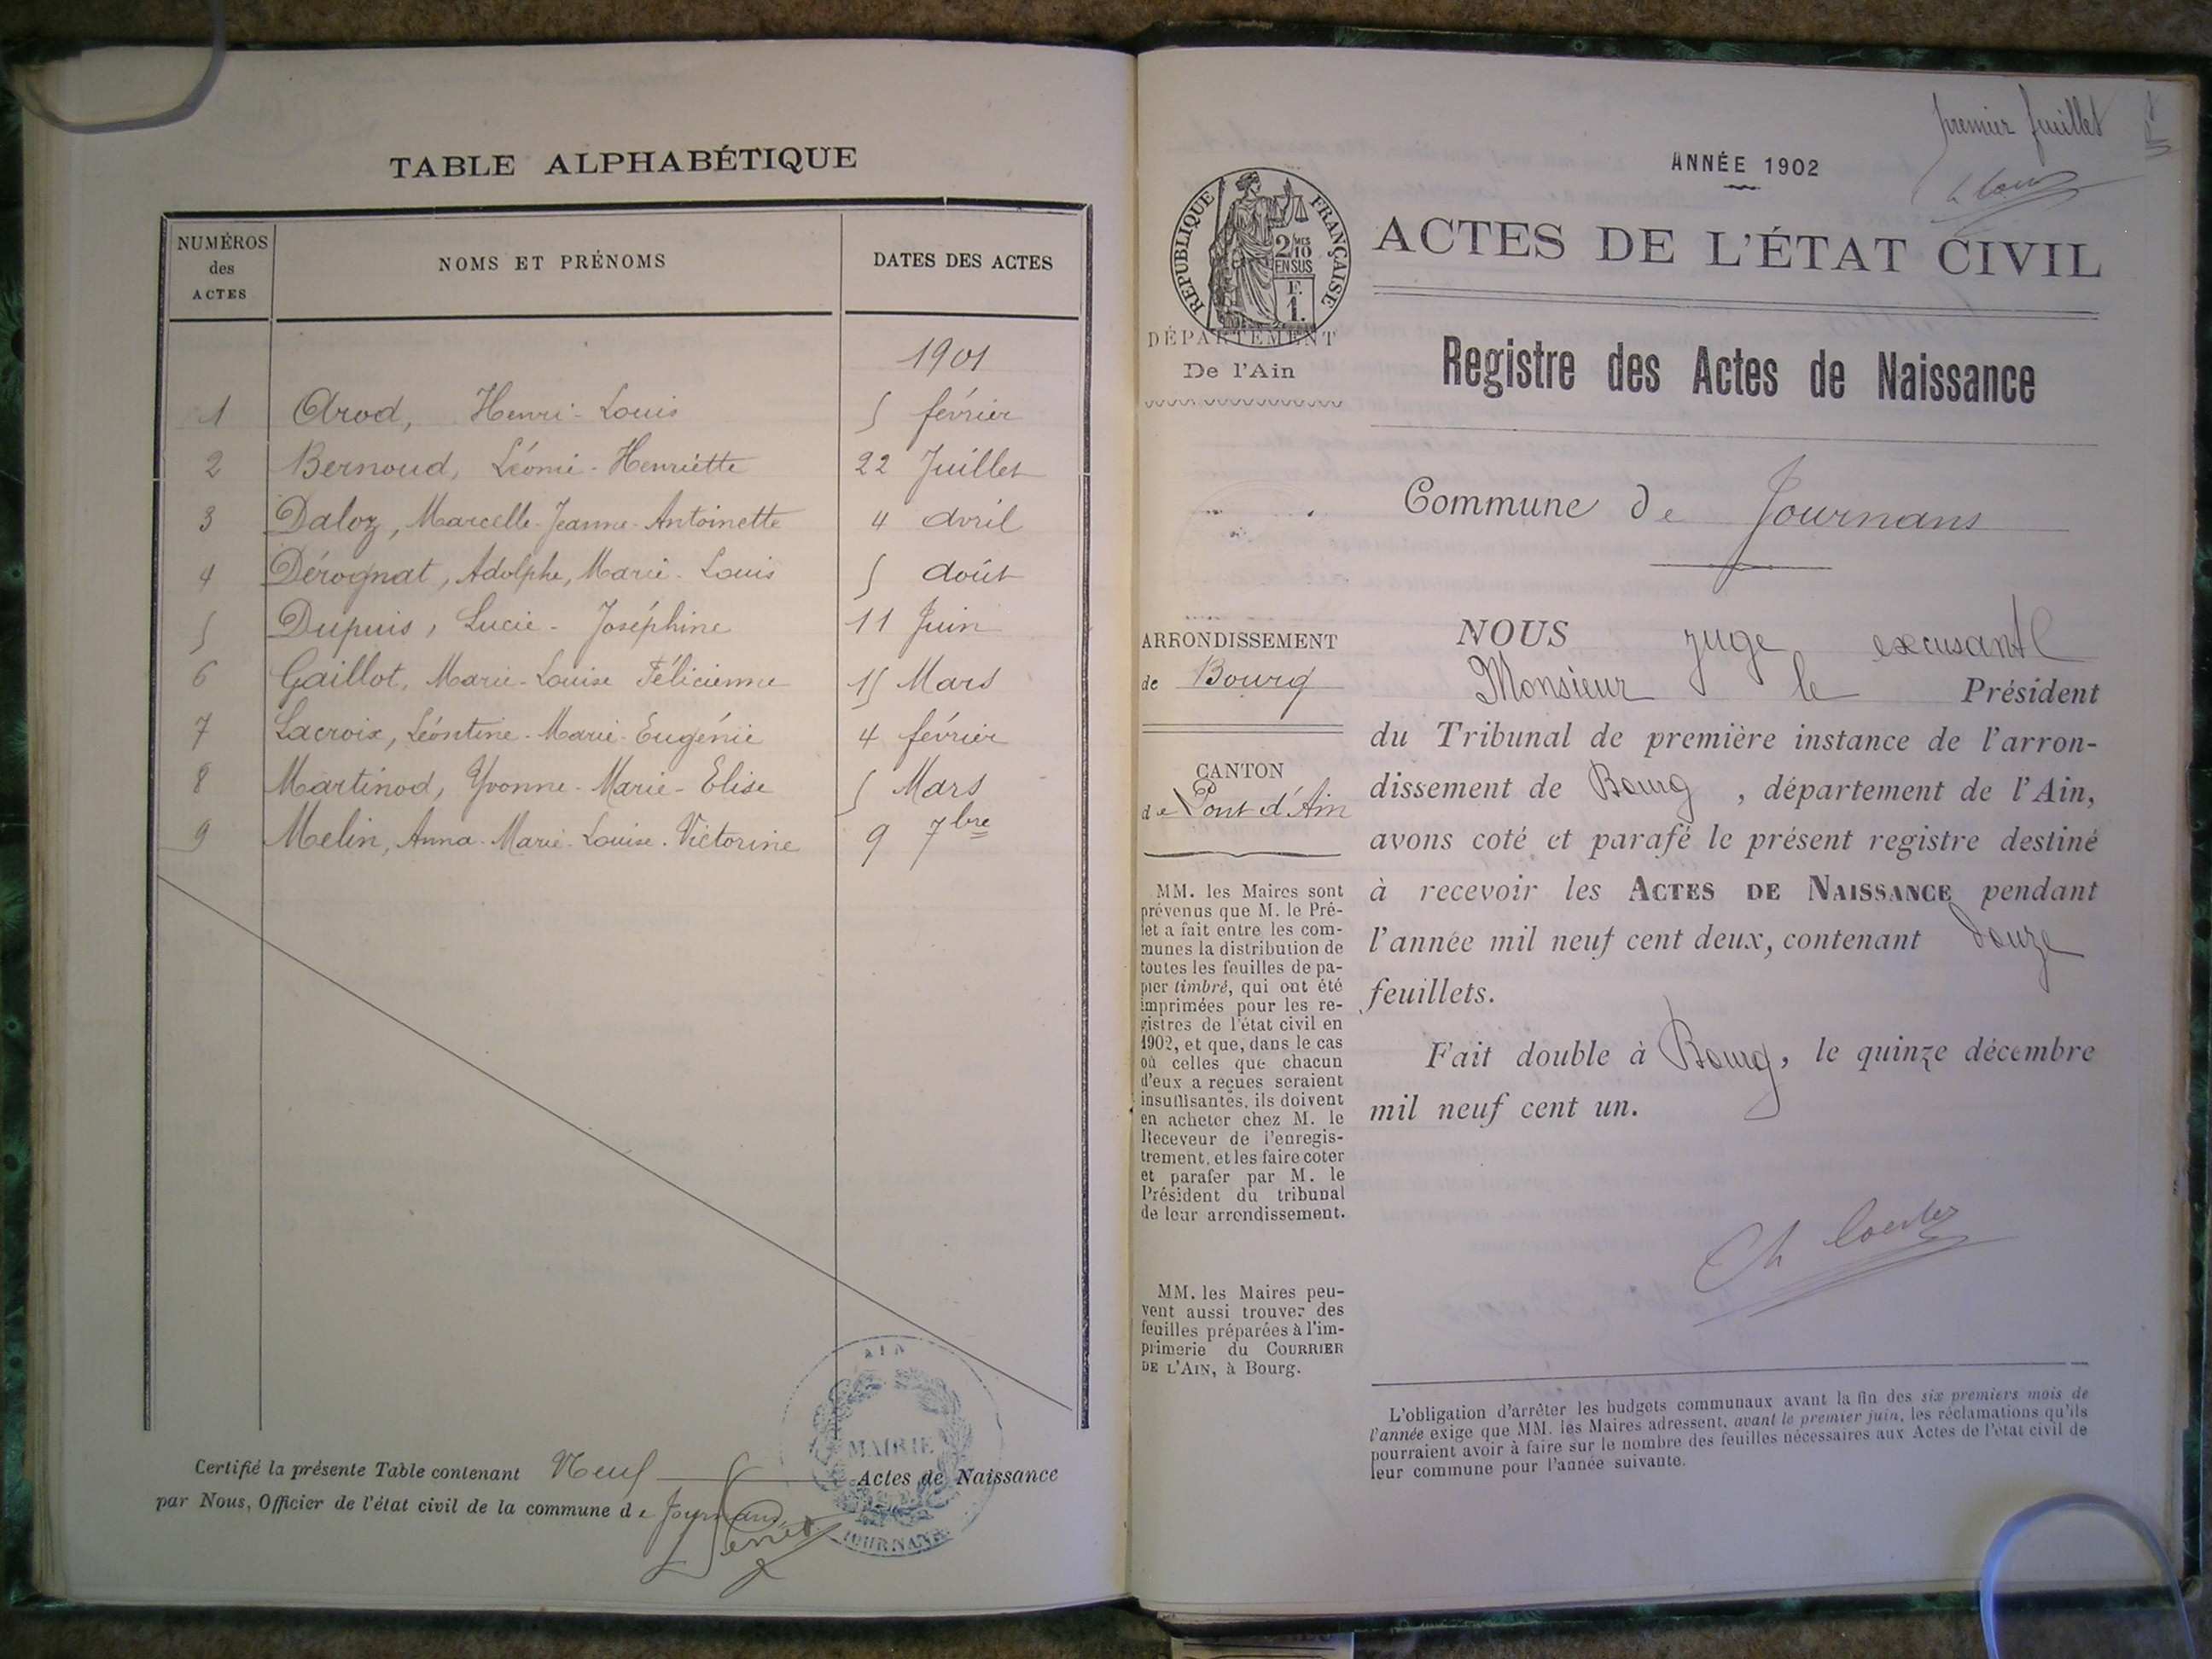 TABLE ALPHABÉTIQUE
NUMÉROS
des
ACTES
NOMS ET PRÉNOMS
DATES DES ACTES
1901
1 Arod, Henri-Louis 5 février
2 Bernoud, Léonie-Henriette 22 Juillet
3 Daloz, Marcelle-Jeanne-Antoinette 4 avril
4 Dérognat, Adolphe, Marie-Louis 5 août
5 Dupuis, Lucie-Joséphine 11 Juin
6 Gaillot, Marie-Louise Félicienne 15 Mars
7 Lacroix, Léontine-Marie-Eugénie 4 février
8 Martinod, Yvonne-Marie-Elise 5 Mars
9 Melin, Anna-Marie-Louise-Victorine 9 7bre
AIN
MAIRIE
JOURNANS
Certifié la présente Table contenant Neuf Actes de Naissance
par Nous, Officier de l'état civil de la commune de Journans
premier feuillet
ANNÉE 1902
RÉPUBLIQUE FRANÇAISE
2/10 MES
EN SUS
F.
1.
ACTES DE L'ÉTAT CIVIL
DÉPARTEMENT
De l'Ain
Registre des Actes de Naissance
Commune de Journans
ARRONDISSEMENT
de Bourg
CANTON
de Pont d'Ain
MM. les Maires sont
prévenus que M. le Pré-
fet a fait entre les com-
munes la distribution de
toutes les feuilles de pa-
pier timbré, qui ont été
imprimées pour les re-
gistres de l'état civil en
1902, et que, dans le cas
où celles que chacun
d'eux a reçues seraient
insuffisantes, ils doivent
en acheter chez M. le
Receveur de l'enregis-
trement, et les faire coter
et parafer par M. le
Président du tribunal
de leur arrondissement.
MM. les Maires peu-
vent aussi trouver des
feuilles préparées à l'im-
primerie du COURRIER
DE L'AIN, à Bourg.
NOUS juge excusant
Monsieur le Président
du Tribunal de première instance de l'arron-
dissement de Bourg, département de l'Ain,
avons coté et parafé le présent registre destiné
à recevoir les ACTES DE NAISSANCE pendant
l'année mil neuf cent deux, contenant douze
feuillets.
Fait double à Bourg, le quinze décembre
mil neuf cent un.
L'obligation d'arrêter les budgets communaux avant la fin des six premiers mois de
l'année exige que MM. les Maires adressent, avant le premier juin, les réclamations qu'ils
pourraient avoir à faire sur le nombre des feuilles nécessaires aux Actes de l'état civil de
leur commune pour l'année suivante.